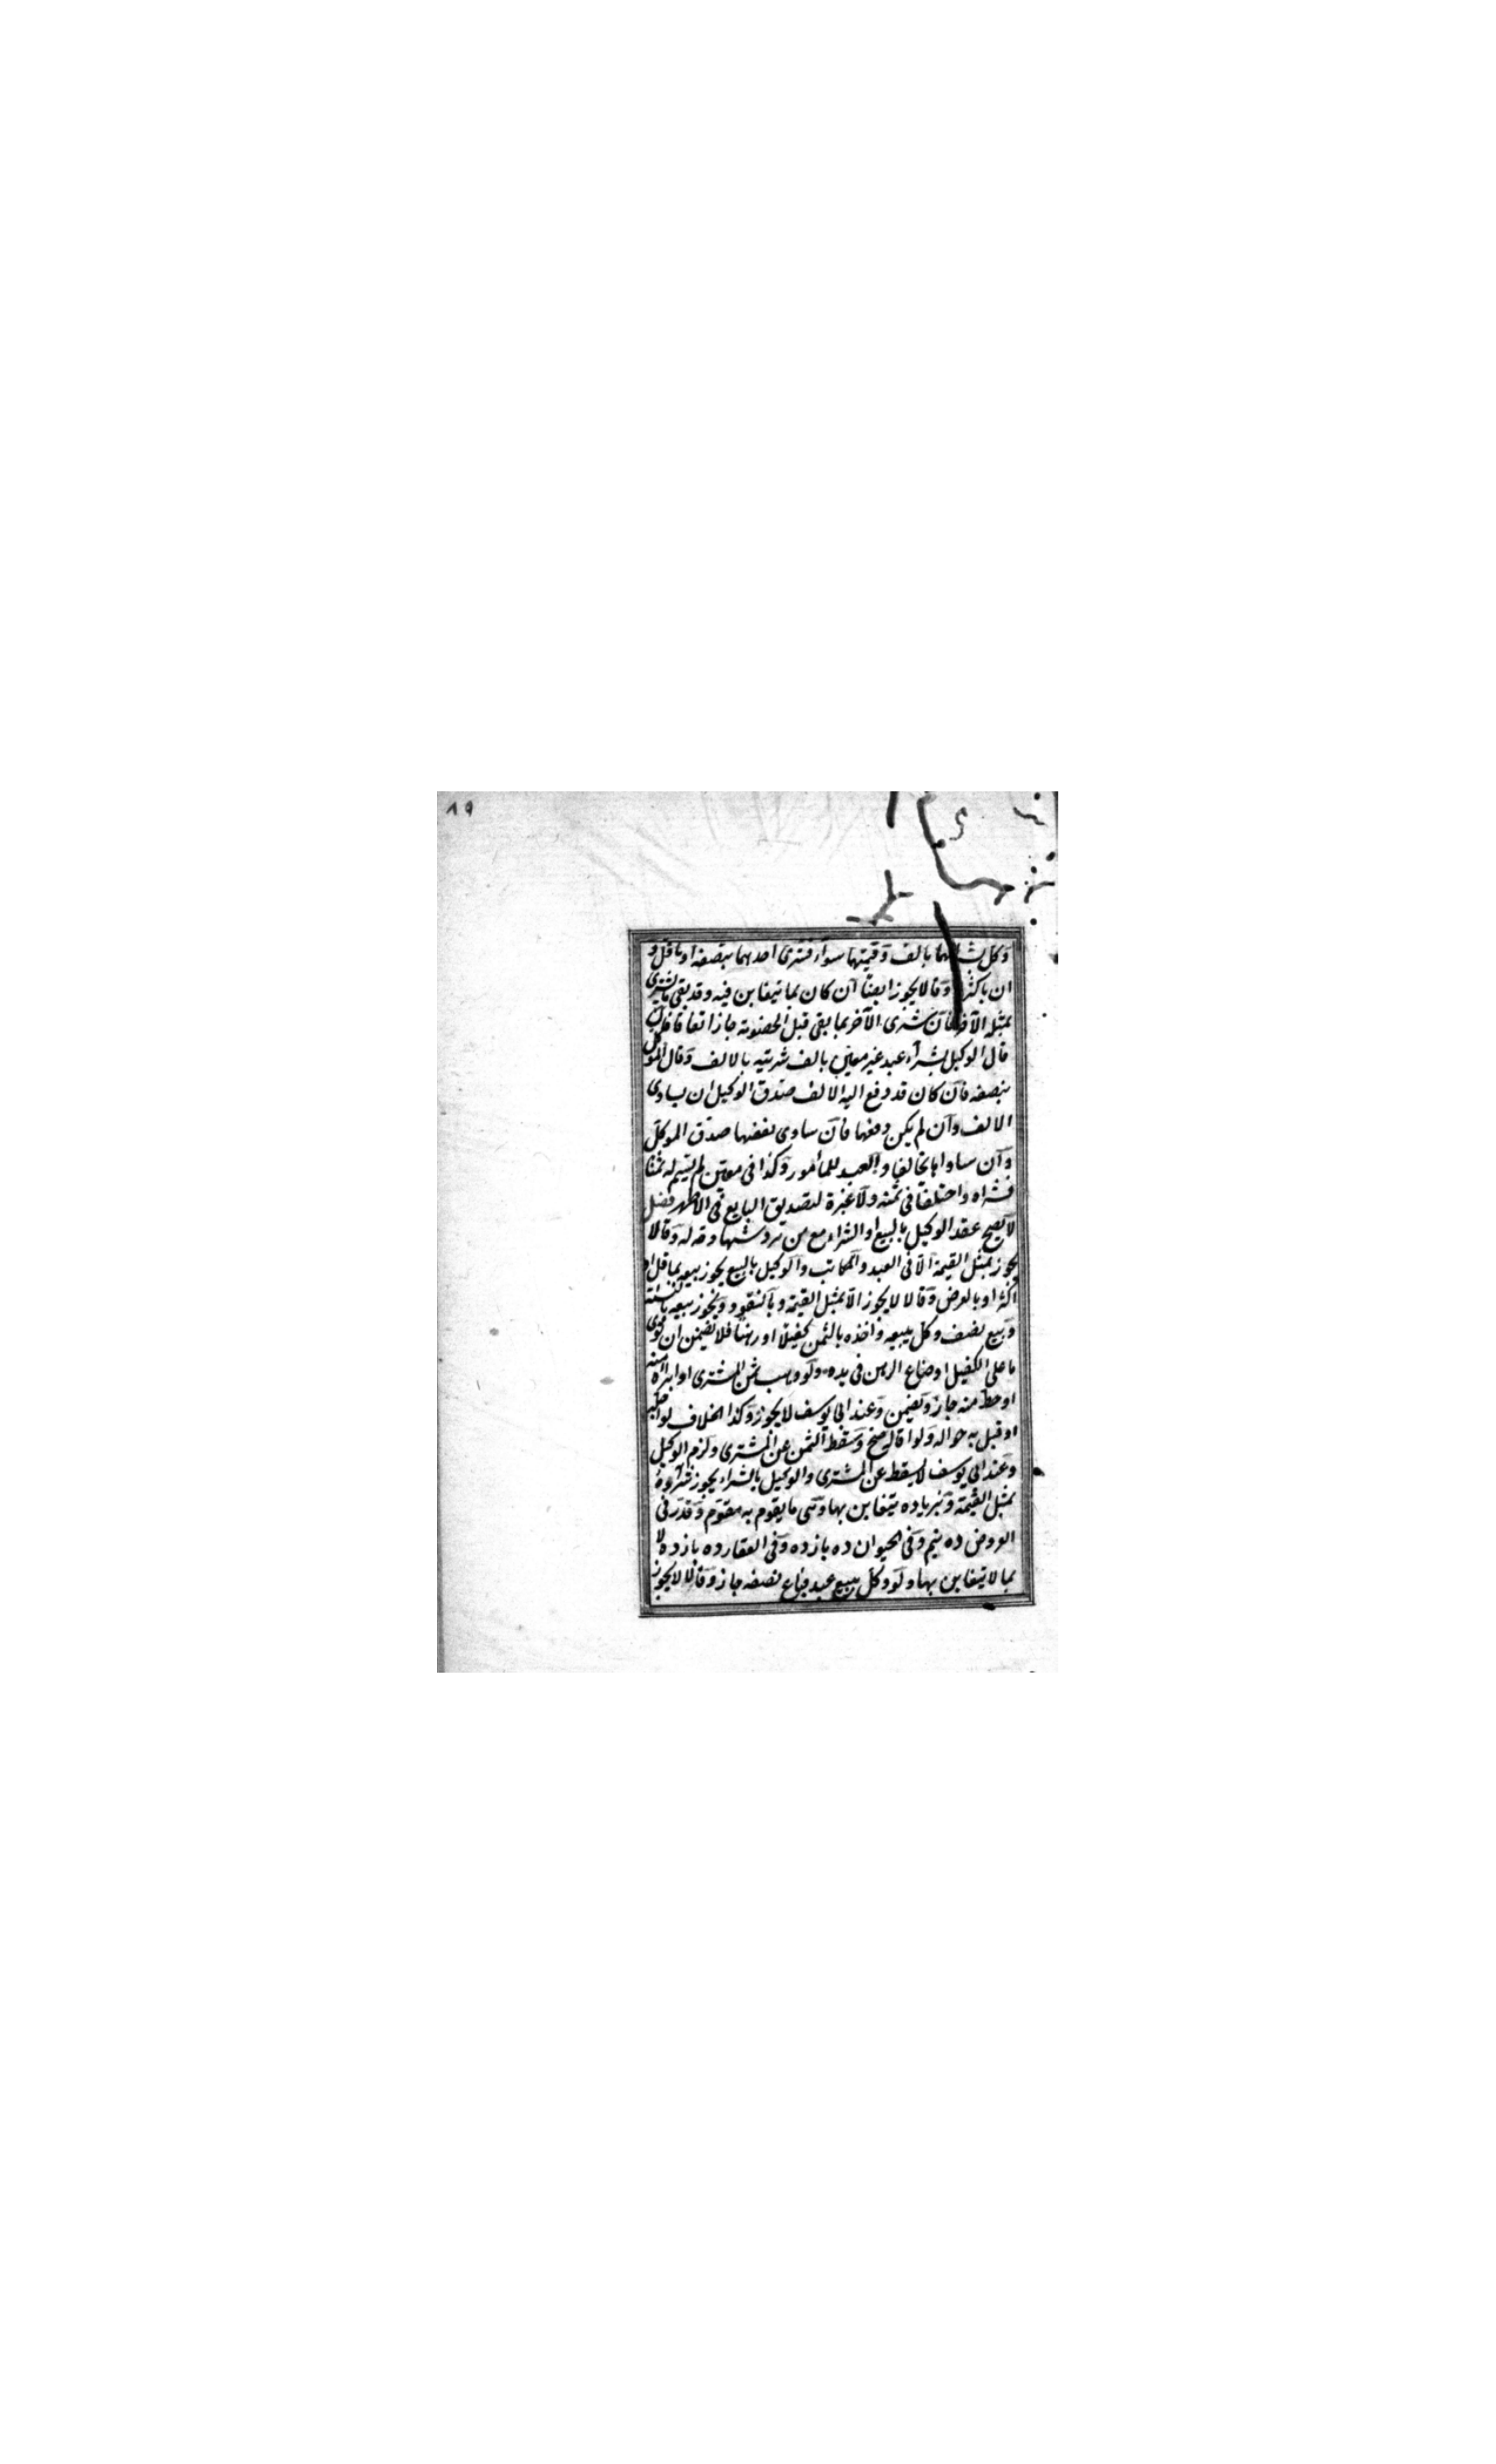 ٨٩
وكل بشرائهما بالف وقيمتهما سواء فشرى احدهما بنصفه او باقل و
ان باكثر وقالا يجوز ايضا ان كان بما يتغابن فيه وقد بقى ما يشترى
بمثله الآخر فان شرى الآخر بما بقى قبل الخصومة جاز اتفاقا فان
قال الوكيل بشراء عبد غير معين بالف شريته بالالف وقال الموكل
بنصفه فان كان قد دفع اليه الالف صدق الوكيل ان يساوى
الالف وان لم يكن دفعها فان ساوى نصفها صدق الموكل
وان ساواها تخالفا والعبد للمأمور وكذا فى معين لم يسم له ثمنا
فشراه واختلفا فى ثمنه ولا عبرة لتصديق البايع فى الاظهر فصل
لا يصح عقد الوكيل بالبيع او الشراء مع من ترد شهادته له وقالا
يجوز بمثل القيمة الا فى العبد والمكاتب والوكيل بالبيع يجوز بيعه بما قل او
اكثر او بالعرض وقالا لا يجوز الا بمثل القيمة وبالنقود ويجوز بيعه بالنسئة
وبيع نصف وكل ببيعه واخذه بالثمن كفيلا او رهنا فلا يضمن ان توى
ما على الكفيل او ضاع الرهن فى يده ولو وهب ثمن المشترى او ابراه منه
او حط منه جاز ويضمن وعند ابى يوسف لا يجوز وكذا الخلاف لو اجله
او قبل به حواله ولو اقال صح وسقط الثمن عن المشترى ولزم الوكيل
وعند ابى يوسف لا يسقط عن المشترى والوكيل بالشراء يجوز شروه
بمثل القيمة وبزياده يتغابن بها وهى ما يقوم به مقوم وقدر فى
العروض ده نيم وفى الحيوان ده يازده وفى العقار ده يازده لا
بما لا يتغابن بها ولو وكل ببيع عبد فباع نصفه جاز وقالا لا يجوز